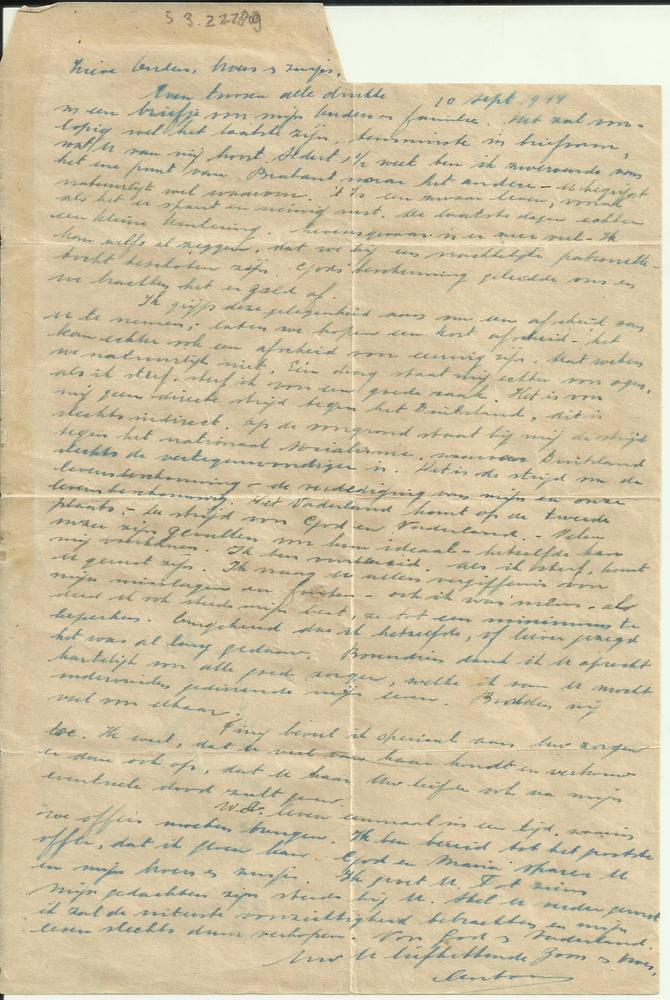 5 3.22289
Lieve ouders, broer & zusje,
10 Sept. 1944
Even tussen alle drukte
een briefje van mijn ouders en familie. Het zal voor-
lopig wel het laatste zijn, tenminste in briefvorm,
wat U van mij hoort. Sedert 1½ week ben ik zwervende van
het ene punt van Brabant naar het andere - U begrijpt
natuurlijk wel waarom. 't Is een zwaar leven, vooral
als het er spant en weinig rust. De laatste dagen echter
een kleine kentering. Levensgevaar is er zeer veel. Ik
kan zelfs al zeggen, dat we bij een nachtelijke patrouille-
tocht beschoten zijn. Gods bescherming geleidde ons en
we brachten het er goed af.
Ik grijp deze gelegenheid aan om een afscheid van
U te nemen; laten we hopen een kort afscheid. Het
kan echter ook een afscheid voor eeuwig zijn. Dat weten
we natuurlijk niet. Eén ding staat mij echter voor ogen,
als ik sterf, sterf ik voor een goede zaak. Het is voor
mij geen directe strijd tegen het Duitsland, dit is
slechts indirect. Op de voorgrond staat bij mij de strijd
tegen het nationaal socialisme, waarvan Duitsland
slechts de vertegenwoordiger is. Het is de strijd om de
levensbeschouwing - de verdediging van mijn en onze
levensbeschouwing. Het Vaderland komt op de tweede
plaats. - De strijd voor God en Vaderland. - Velen
onzer zijn gevallen voor hun ideaal - hetzelfde kan
mij voorkomen. Ik ben voorbereid. Als ik sterf, kunt
U gerust zijn. Ik vraag U allen vergiffenis voor
mijn misslagen en fouten - ook ik was mens - al
deed ik ook steeds mijn best, ze tot een minimum te
beperken. Omgekeerd doe ik hetzelfde, of liever gezegd
het was al lang gedaan. Bovendien dank ik U oprecht
hartelijk voor alle goede zorgen, welke ik van U mocht
ondervinden gedurende mijn leven. Bidden wij
veel voor elkaar.
Finy beveel ik speciaal aan Uw zorgen
toe. Ik weet, dat U veel van haar houdt en vertrouw
er dan ook op, dat U haar Uw liefde ook na mijn
eventuele dood zult geven.
We leven eenmaal in een tijd, waarin
we offers moeten brengen. Ik ben bereid tot het grootste
offer, dat ik geven kan. God en Maria sparen U
en mijn broer en zusje. Ik groet U. Tot ziens
Mijn gedachten zijn steeds bij U. Stel U verder gerust
ik zal de uiterste voorzichtigheid betrachten en mijn
leven slechts duur verkopen. Voor God & Vaderland.
Uw U liefhebbende Zoon & broer,